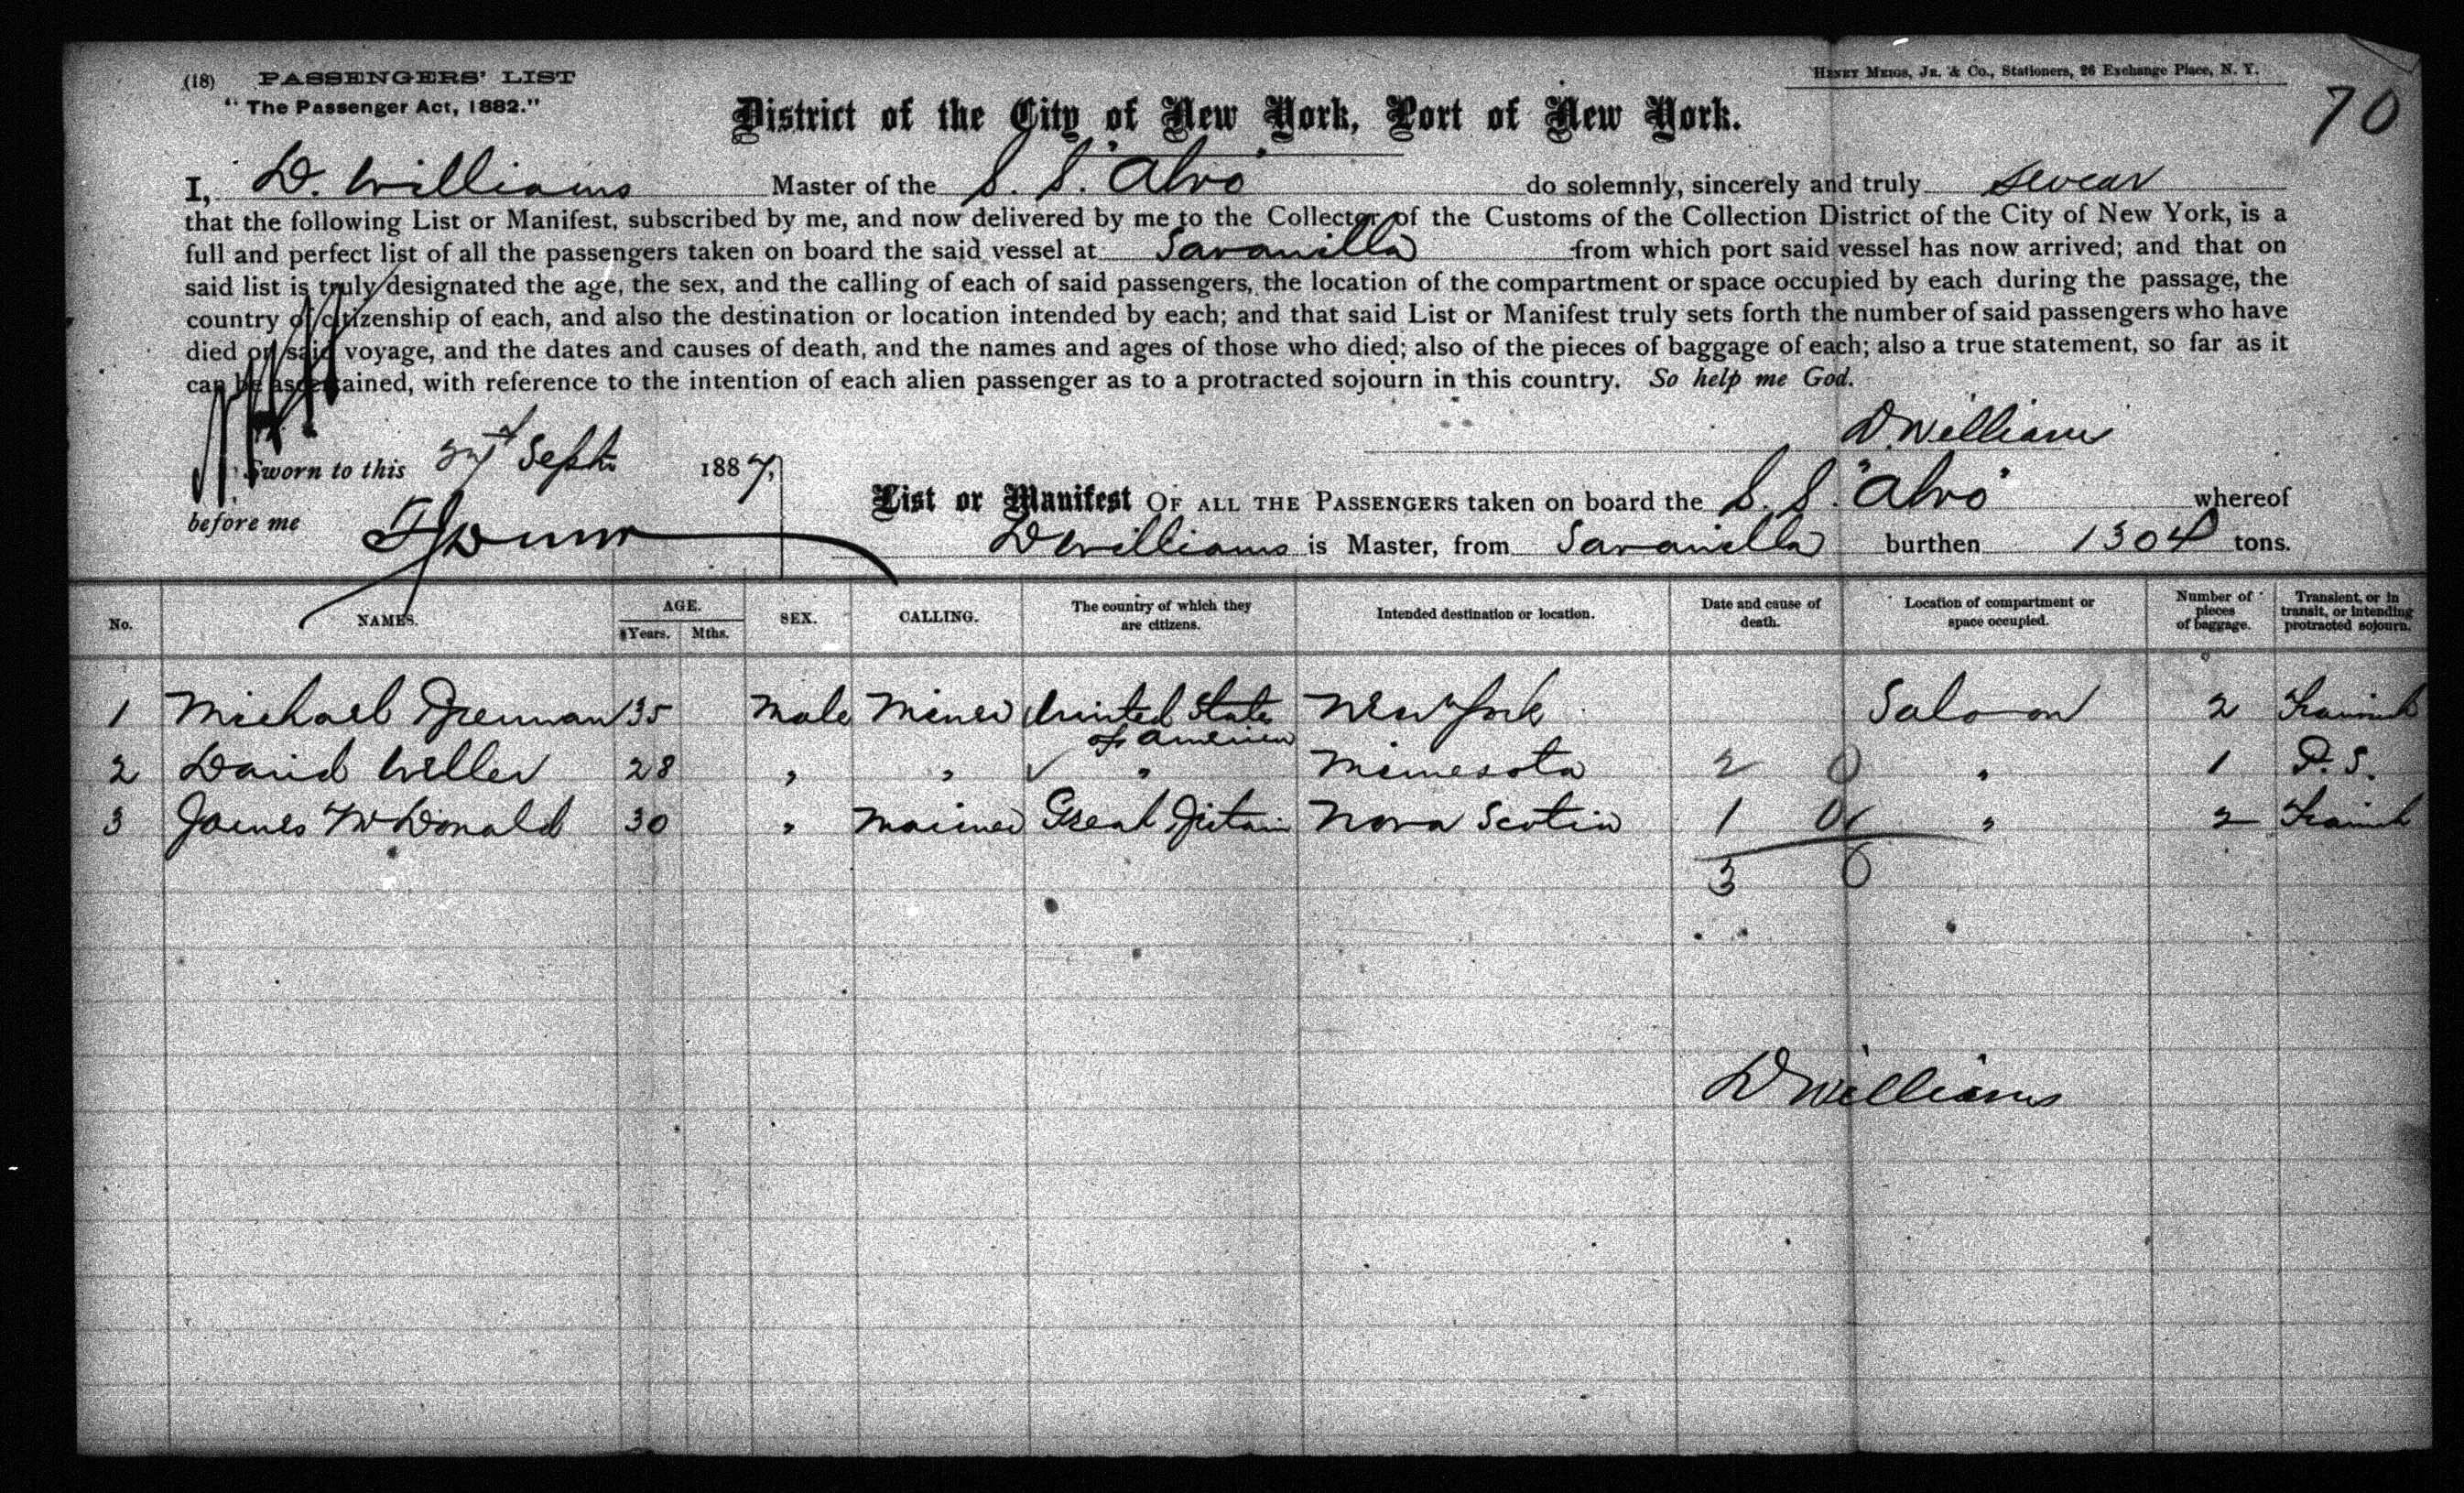 (18) PASSENGERS' LIST
HENRY MEIGS, JR. & Co., Stationers, 26 Exchange Place, N. Y.
"The Passenger Act, 1882."
70
District of the City of New York, Port of New York.
I, D. Williams Master of the S. S. "Alvo" do solemnly, sincerely and truly swear
that the following List or Manifest, subscribed by me, and now delivered by me to the Collector of the Customs of the Collection District of the City of New York, is a
full and perfect list of all the passengers taken on board the said vessel at Savanilla from which port said vessel has now arrived; and that on
said list is truly designated the age, the sex, and the calling of each of said passengers, the location of the compartment or space occupied by each during the passage, the
country of citizenship of each, and also the destination or location intended by each; and that said List or Manifest truly sets forth the number of said passengers who have
died on said voyage, and the dates and causes of death, and the names and ages of those who died; also of the pieces of baggage of each; also a true statement, so far as it
can be ascertained, with reference to the intention of each alien passenger as to a protracted sojourn in this country. So help me God.
D Williams
Sworn to this Sept 1887,
before me
List or Manifest OF ALL THE PASSENGERS taken on board the S. S. "Alvo" whereof
D Williams is Master, from Savanilla burthen 1304 tons.
No. NAMES. AGE. Years. Mths. SEX. CALLING. The country of which they are citizens. Intended destination or location. Date and cause of death. Location of compartment or space occupied. Number of pieces of baggage. Transient, or in transit, or intending protracted sojourn.
1 Michael 35 Male Miner United States of America New York Saloon 2 Transit
2 David Weller 28 " " " Minnesota 2 0 " 1 P. S.
3 James McDonald 30 " Mariner Great Britain Nova Scotia 1 0 " 2 Transit
3 0
D Williams